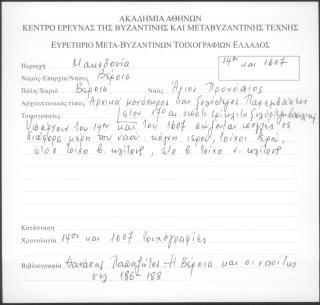 ΑΚΑΔΗΜΙΑ ΑΘΗΝΩΝ
ΚΕΝΤΡΟ ΕΡΕΥΝΑΣ ΤΗΣ ΒΥΖΑΝΤΙΝΗΣ ΚΑΙ ΜΕΤΑΒΥΖΑΝΤΙΝΗΣ ΤΕΧΝΗΣ
ΕΥΡΕΤΗΡΙΟ ΜΕΤΑ-ΒΥΖΑΝΤΙΝΩΝ ΤΟΙΧΟΓΡΑΦΙΩΝ ΕΛΛΑΔΟΣ
Περιοχή Μακεδονία
14ος και 1607
Νομός-Επαρχία/Νήσος Βέροια
Πόλη/Χωριό Βέροια Ναός Άγιος Προκόπιος
Αρχιτεκτονικός τύπος Αρχικά μονόχωρος και ξυλόστεγος Παρεμβάσεις
Τοιχογραφίες στον 17ο αι.
Υπάρχουν του 14ου και του 1607 σε
διάφορα μέρη του ναού: κόγχη ιερού, τοίχοι ιερού,
στο ν. τοίχο β. κλίτους, στο β. τοίχο ν. κλίτους
Κατάσταση
Χρονολογία 14ος και 1607 τοιχογραφίες
Βιβλιογραφία Θανάσης Παπαζώτος Η Βέροια και οι ναοί της
σελ. 186-188